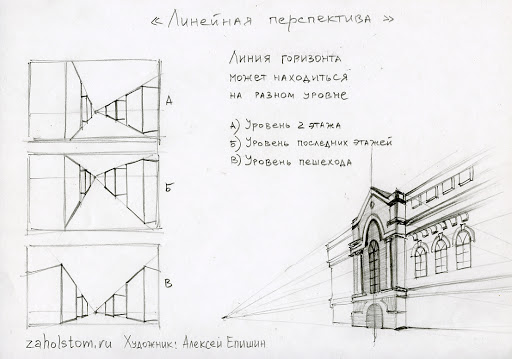 « Линейная перспектива »
Линия горизонта
может находиться
на разном уровне
А) Уровень 2 этажа
Б) Уровень последних этажей
В) Уровень пешехода
А
Б
В
zaholstom.ru Художник: Алексей Епишин